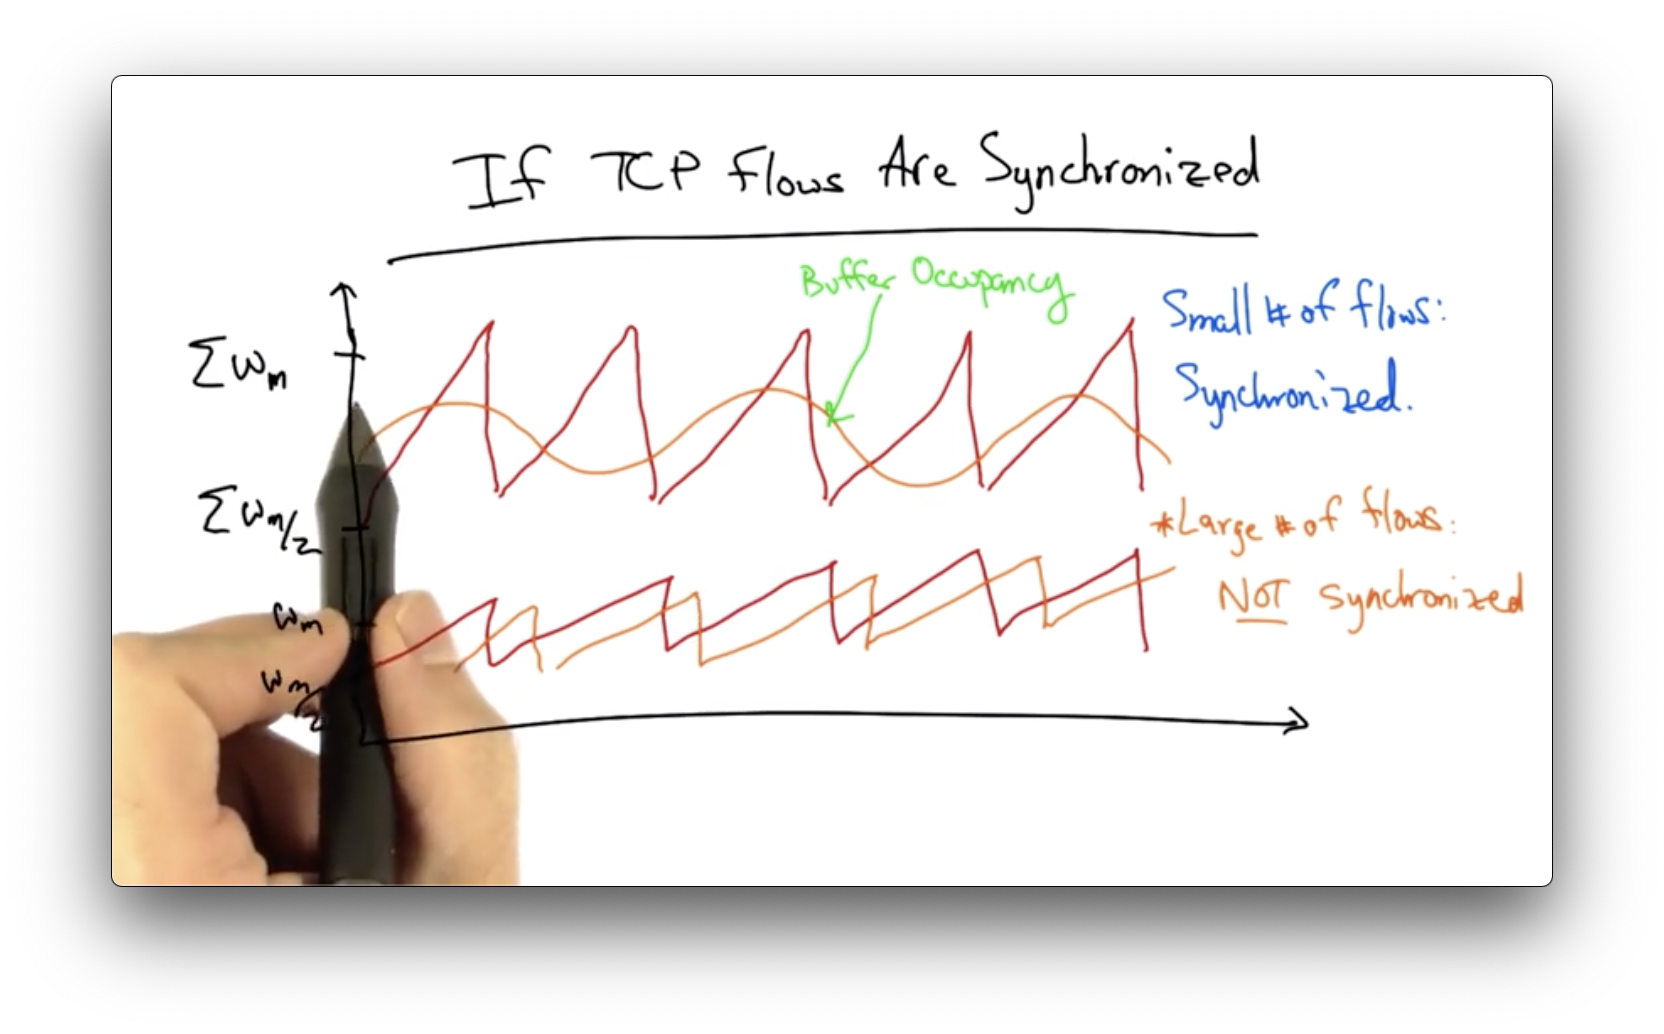 If TCP Flows Are Synchronized
Buffer Occupancy
Small # of flows:
Synchronized.
ΣWm
ΣWm/2
*Large # of flows:
NOT synchronized
Wm
Wm/2